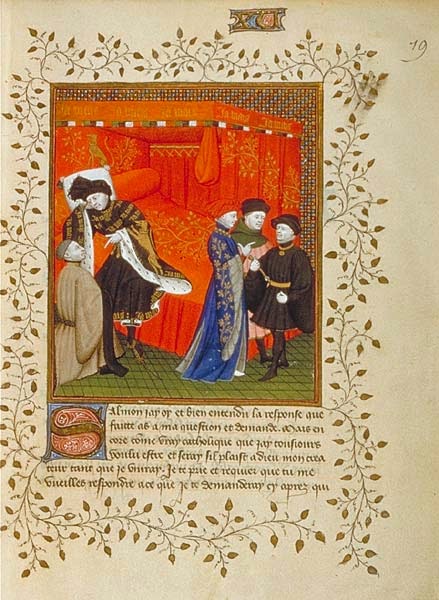 19
Salmon jay oy et bien entendu la response que
faitte as a ma question et demande. Mais en
core cõme vray catholique que jay tousiours
voulu estre et seray sil plaist a dieu mon crea
teur tant que je vivray. Je te prie et requier que tu me
vueilles respondre a ce que je te demanderay cy aprez qui